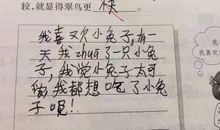 较,就显得翠鸟更 快
我喜欢小兔子,有一
天我zhuā了一只小兔
子,我觉小兔子太可
我都想吃了小兔
子呗!
我喜